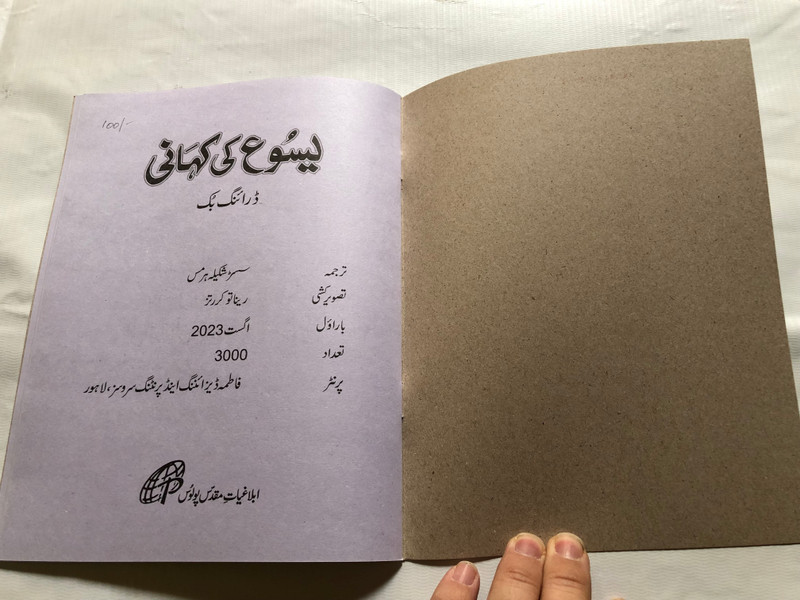 100/-
یسُوع کی کہانی
ڈرائنگ بُک
ترجمہ سسٹر شکیلہ ہرمس
تصویر کشی ریناتو کررتز
بار اوّل اگست 2023
تعداد 3000
پرنٹر فاطمہ ڈیزائننگ اینڈ پرنٹنگ سروسز، لاہور
ابلاغیاتِ مقدّس پولوُس